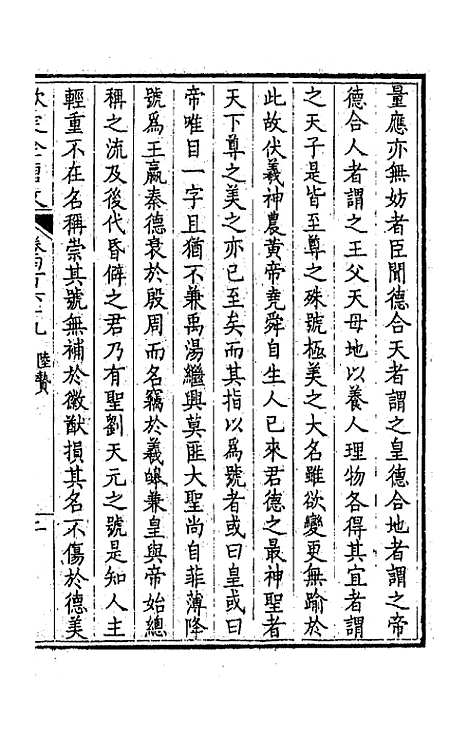 量應亦無妨者臣聞德合天者謂之皇德合地者謂之帝
德合人者謂之王父天母地以養人理物各得其宜者謂
之天子是皆至尊之殊號極美之大名雖欲變更無踰於
此故伏羲神農黃帝堯舜自生人已來君德之最神聖者
天下尊之美之亦已至矣而其指以爲號者或曰皇或曰
帝唯目一字且猶不兼禹湯繼興莫匪大聖尚自菲薄降
號爲王嬴秦德衰於殷周而名竊於羲皥兼皇與帝始總
稱之流及後代昏僻之君乃有聖劉天元之號是知人主
輕重不在名稱崇其號無補於徽猷損其名不傷於德美
欽定全唐文 卷四百六十九 陸贄 二